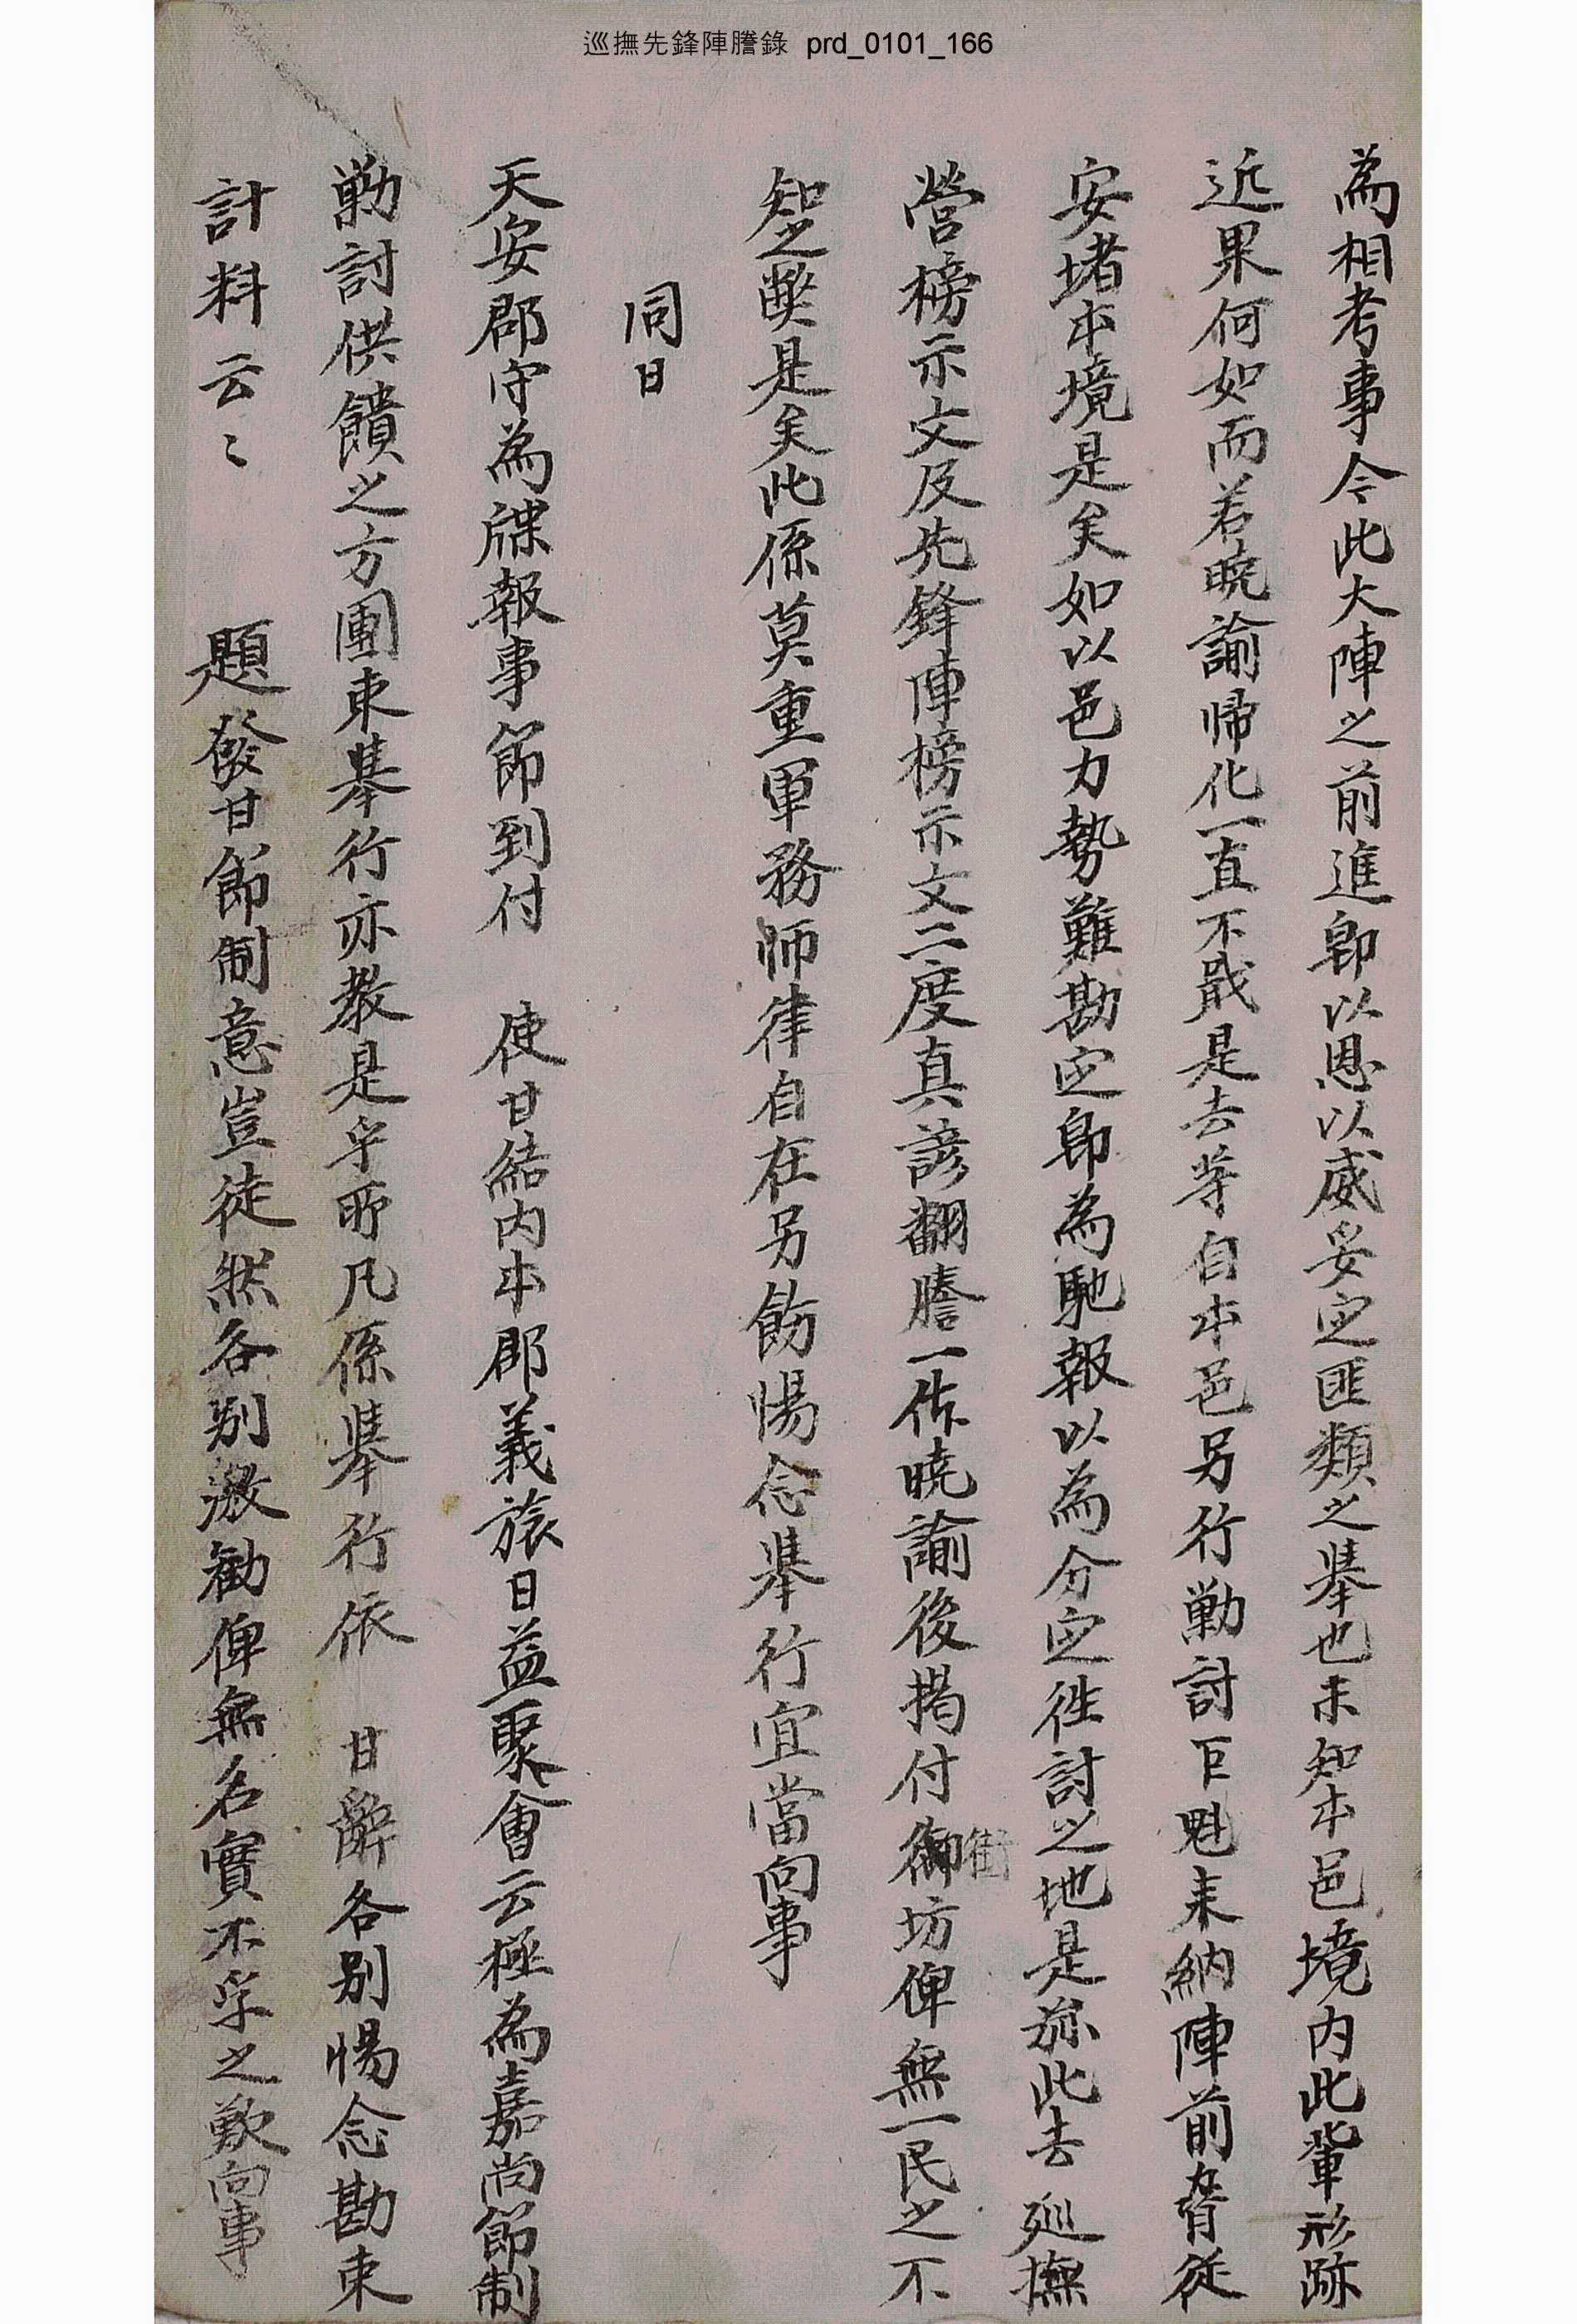 巡撫先鋒陣謄錄 prd_0101_166
為相考事今此大陣之前進卽以恩以威妥定匪類之擧也未知本邑境内此輩形跡
近果何如而若曉諭帰化一直不戢是去等自本邑另行勦討巨魁来納陣前脅從
安堵本境是矣如以邑力勢難勘定卽為馳報以為分定徃討之地是旀此去 巡撫
營榜示文及先鋒陣榜示文二度真諺翻謄一依曉諭後揭付街坊俾無一民之不
知之獘是矣此係莫重軍務師律自在另飭惕念擧行宜當向事
同日
天安郡守為牒報事節到付 使甘結内本郡義旅日益聚會云極為嘉尚節制
勦討供饋之方團束擧行亦教是乎所凡係擧行依 甘辭各別惕念勘束
計料云〻 題發甘節制意豈徒然各別激勸俾無名實不孚之歎向事